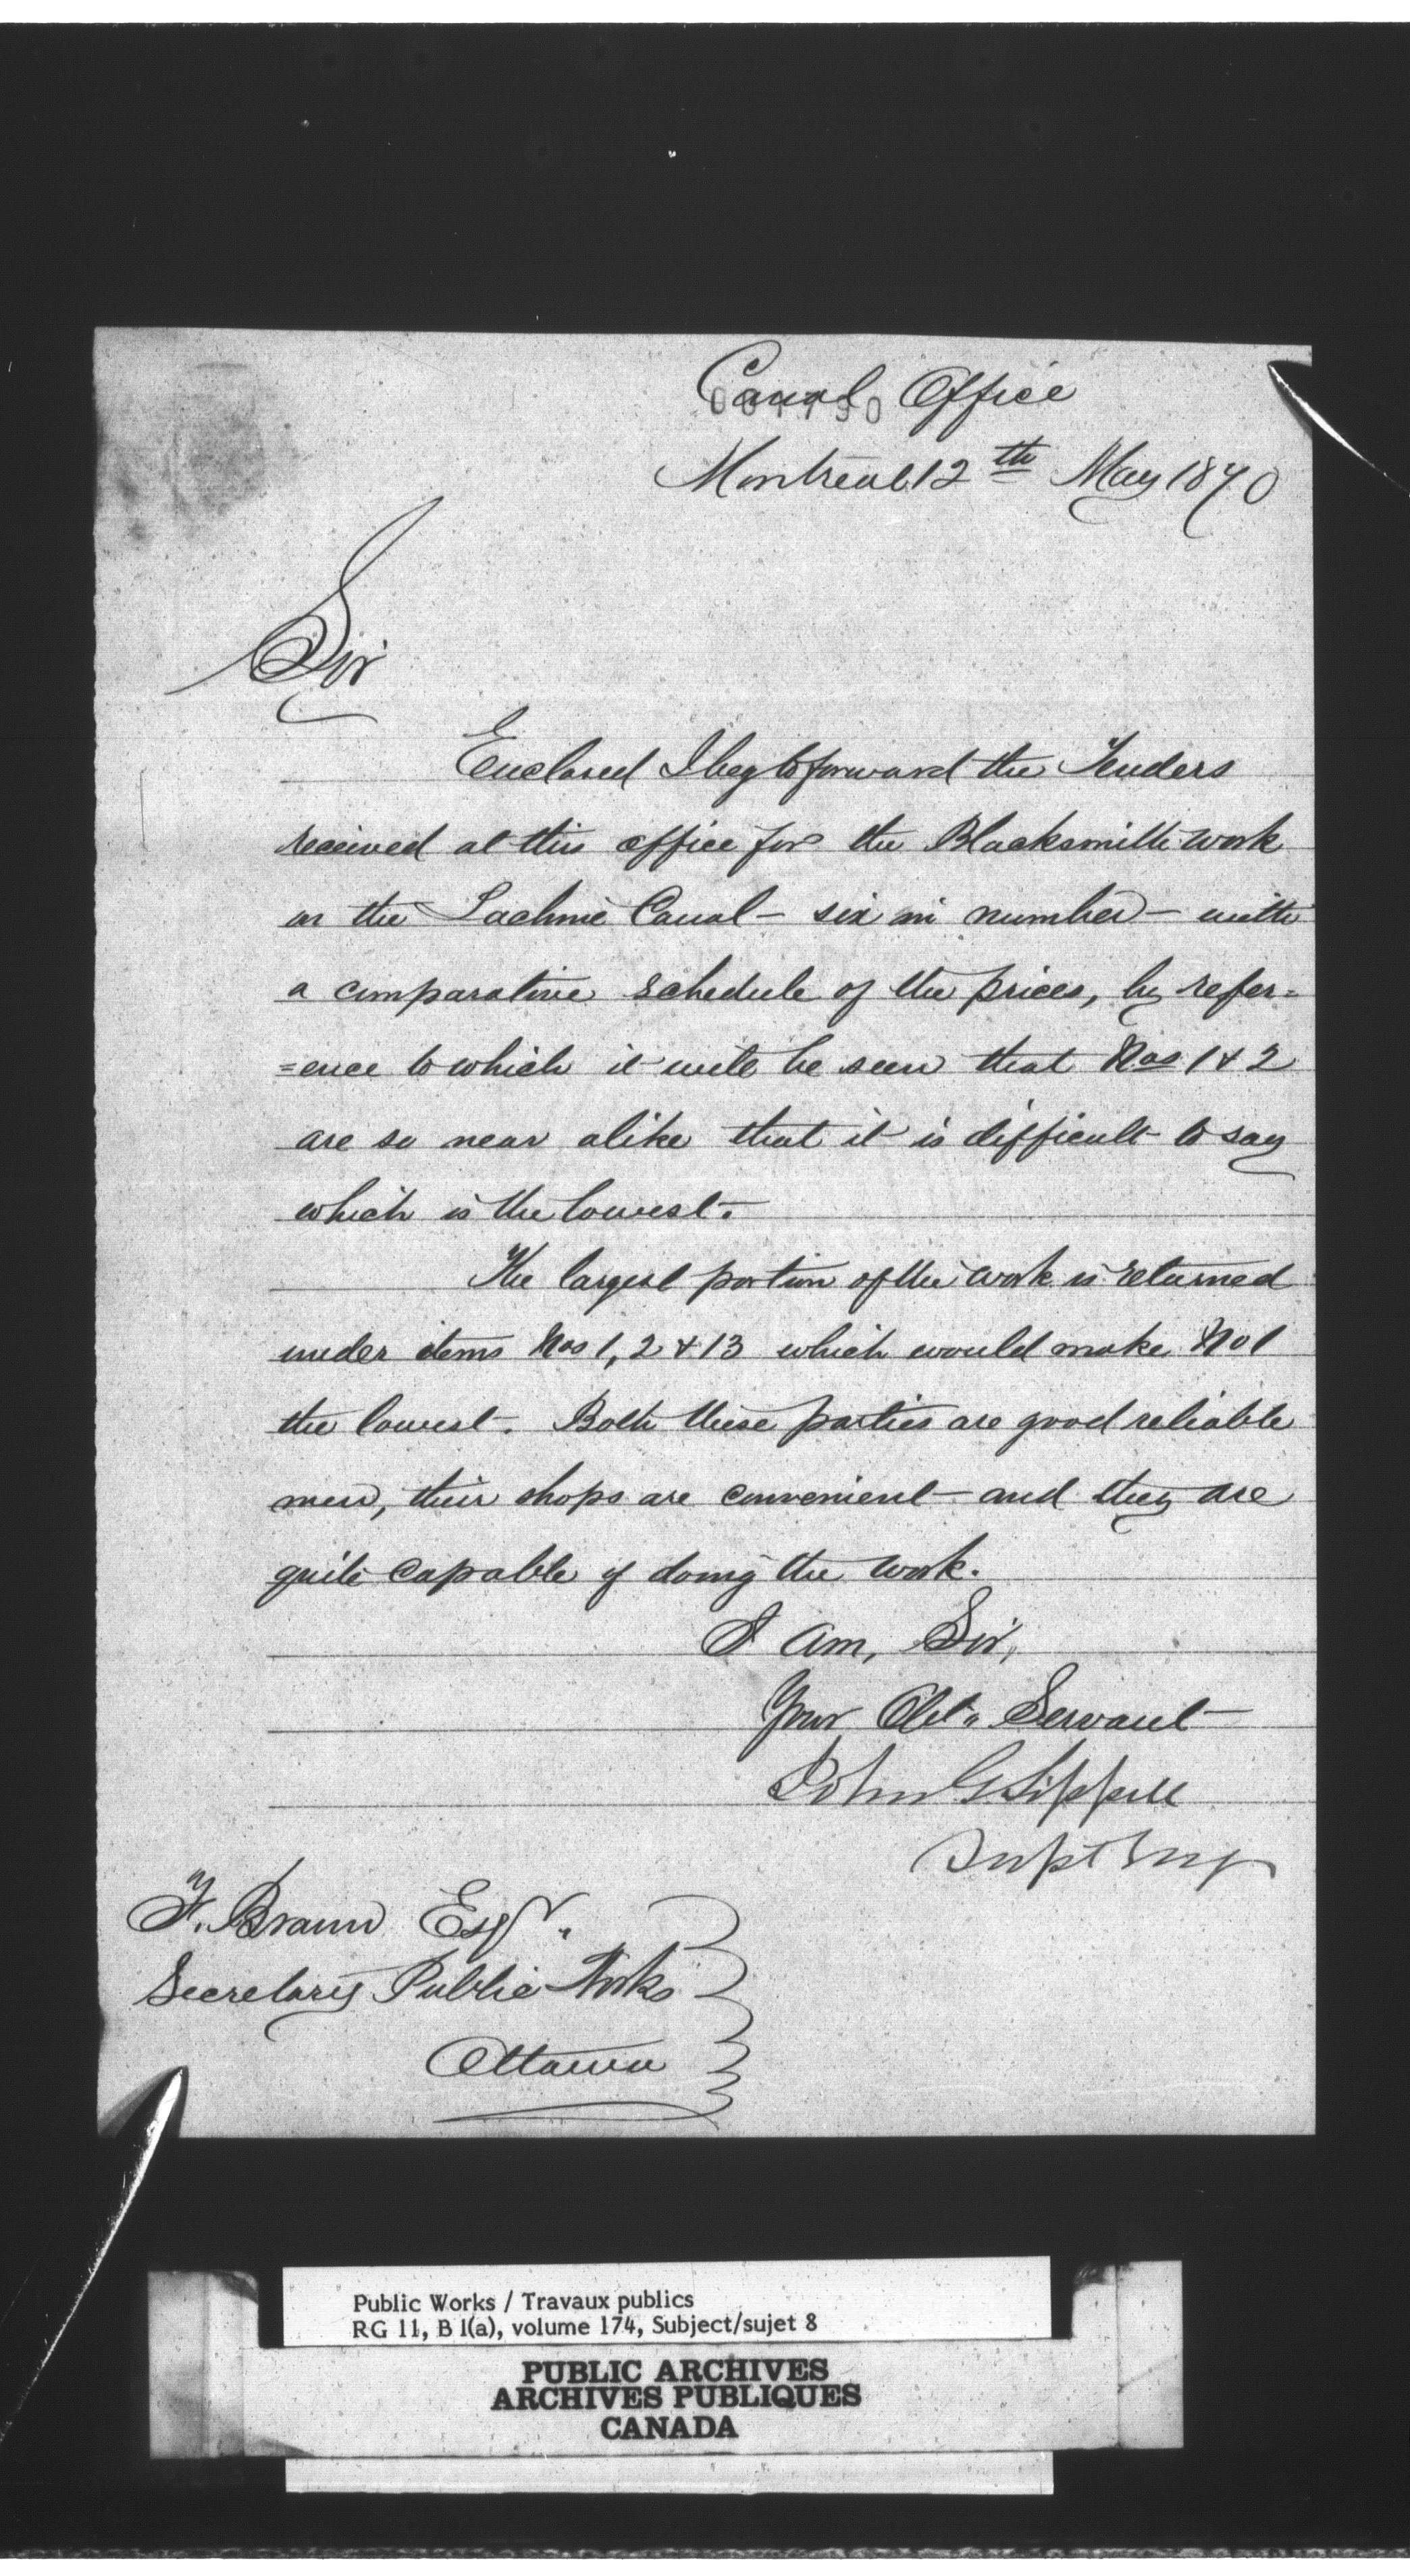 Canal Office
Montreal 12th May 1870
Sir
Enclosed I beg to forward the Tenders
received at this office for the Blacksmith work
on the Lachine Canal - six in number - with
a comparative schedule of the prices, by refer=
=ence to which it will be seen that Nos 1 & 2
are so near alike that it is difficult to say
which is the lowest.
The largest portion of the work is returned
under items Nos 1, 2 & 13 which would make No 1
the lowest. Both these parties are good reliable
men, their shops are convenient - and they are
quite capable of doing the work.
I am, Sir,
Your Obt. Servant
John G Sippell
Supt Eng
F. Braun Esqr.
Secretary Public Works
Ottawa
Public Works / Travaux publics
RG 11, B 1(a), volume 174, Subject/sujet 8
PUBLIC ARCHIVES
ARCHIVES PUBLIQUES
CANADA